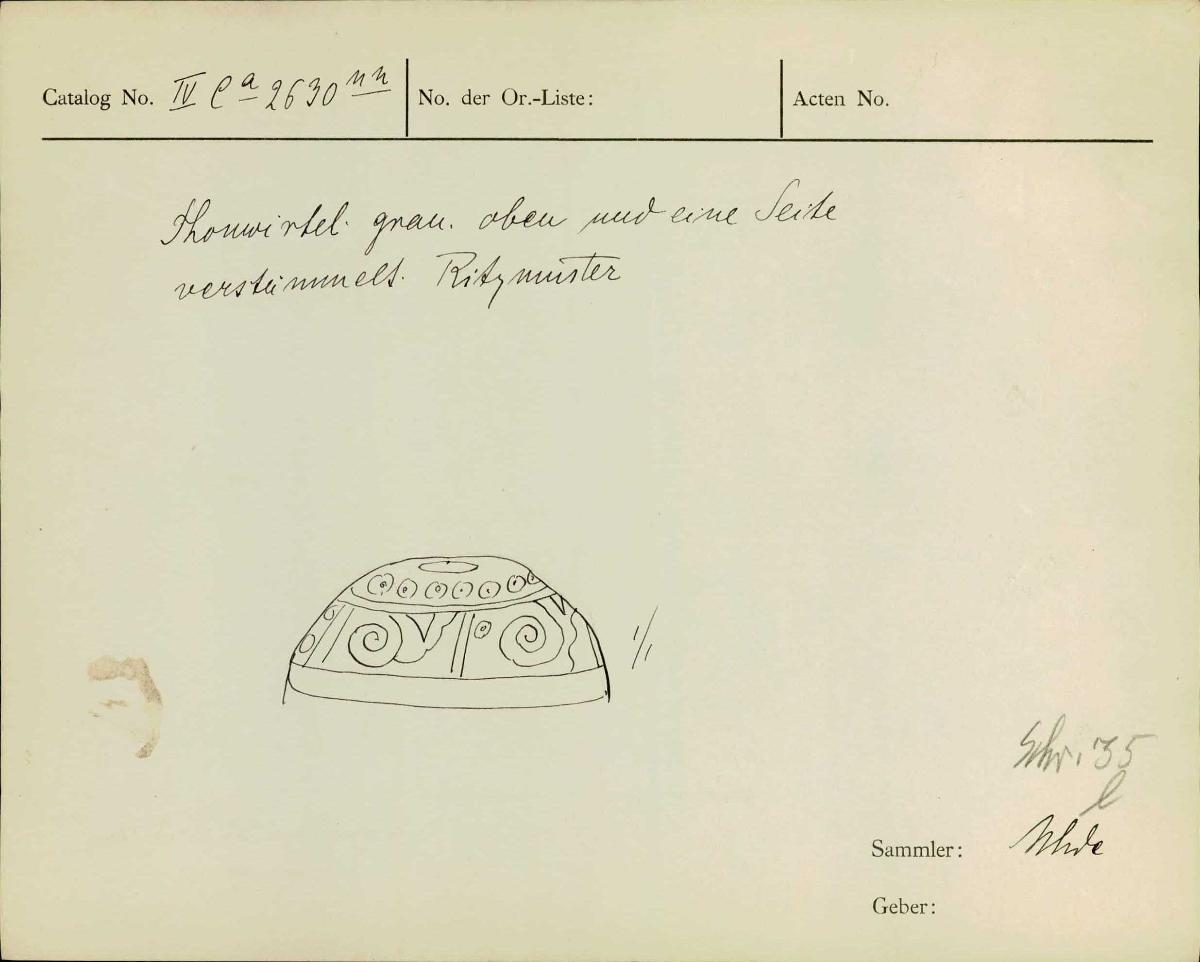 Catalog No. IV Ca 2630 nn
No. der Or.-Liste:
Acten No.
Thonwirtel. grau. oben und eine Seite
verstümmelt. Ritzmuster
1/1
Schr. 35
l
Sammler: Uhde
Geber: